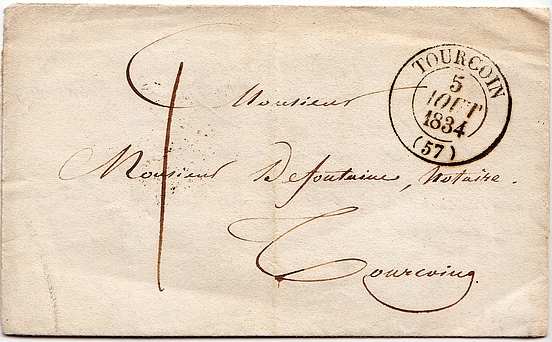 TOURCOIN
5
AOUT
1834
(57)
1
Monsieur
Monsieur Defontaine, Notaire.
Tourcoing.